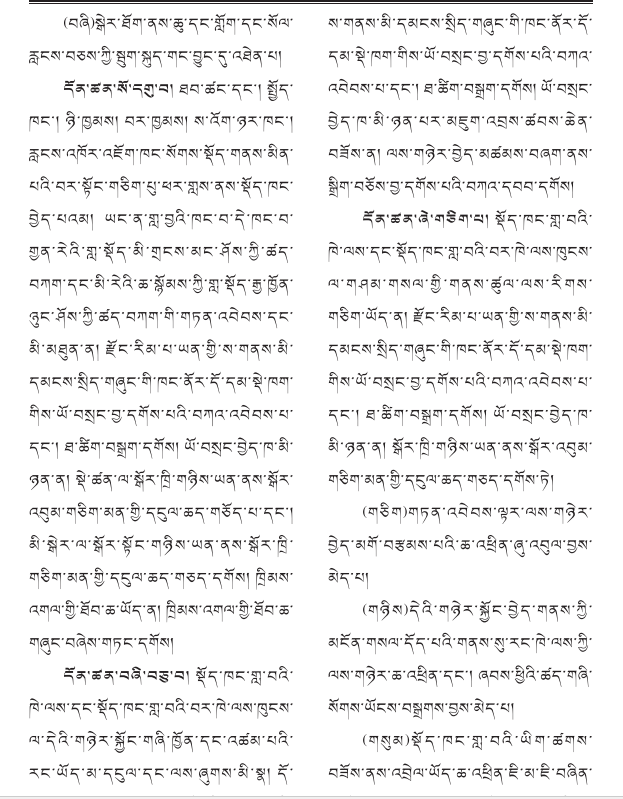 (བཞི)སྒེར་ཐོག་ནས་ཆུ་དང་གློག་དང་སོལ་
རླངས་བཅས་ཀྱི་སྦུག་སྐུད་གང་བྱུང་དུ་འཐེན་པ།
དོན་ཚན་སོ་དགུ་བ། ཐབ་ཚང་དང་། སྤྱོད་
ཁང་། ཉི་ཁྱམས། བར་ཁྱམས། ས་འོག་ཉར་ཁང་།
རླངས་འཁོར་འཇོག་ཁང་སོགས་སྡོད་གནས་མིན་
པའི་བར་སྟོང་གཅིག་པུ་ཕར་གླས་ནས་སྡོད་ཁང་
བྱེད་པའམ། ཡང་ན་གླ་བྱའི་ཁང་བ་དེ་ཁང་བ་
གྱན་རེའི་གླ་སྡོད་མི་གྲངས་མང་ཤོས་ཀྱི་ཚད་
བཀག་དང་མི་རེའི་ཆ་སྙོམས་ཀྱི་གླ་སྡོད་རྒྱ་ཁྱོན་
ཉུང་ཤོས་ཀྱི་ཚད་བཀག་གི་གཏན་འབེབས་དང་
མི་མཐུན་ན། རྫོང་རིམ་པ་ཡན་གྱི་ས་གནས་མི་
དམངས་སྲིད་གཞུང་གི་ཁང་ནོར་དོ་དམ་སྡེ་ཁག་
གིས་ཡོ་བསྲང་བྱ་དགོས་པའི་བཀའ་འབེབས་པ་
དང་། ཐ་ཚིག་བསྒྲག་དགོས། ཡོ་བསྲང་བྱེད་ཁ་མི་
ཉན་ན། སྡེ་ཚན་ལ་སྒོར་ཁྲི་གཉིས་ཡན་ནས་སྒོར་
འབུམ་གཅིག་མན་གྱི་དངུལ་ཆད་གཅོད་པ་དང་།
མི་སྒེར་ལ་སྒོར་སྟོང་གཉིས་ཡན་ནས་སྒོར་ཁྲི་
གཅིག་མན་གྱི་དངུལ་ཆད་གཅད་དགོས། ཁྲིམས་
འགལ་གྱི་ཐོབ་ཆ་ཡོད་ན། ཁྲིམས་འགལ་གྱི་ཐོབ་ཆ་
གཞུང་བཞེས་གཏང་དགོས།
དོན་ཚན་བཞི་བཅུ་བ། སྡོད་ཁང་གླ་བའི་
ཁེ་ལས་དང་སྡོད་ཁང་གླ་བའི་བར་ཁེ་ལས་ཁུངས་
ལ་དེའི་གཉེར་སྐྱོང་གཞི་ཁྱོན་དང་འཚམ་པའི་
རང་ཡོད་མ་དངུལ་དང་ལས་ཞུགས་མི་སྣ། དོ་
ས་གནས་མི་དམངས་སྲིད་གཞུང་གི་ཁང་ནོར་དོ་
དམ་སྡེ་ཁག་གིས་ཡོ་བསྲང་བྱ་དགོས་པའི་བཀའ་
འབེབས་པ་དང་། ཐ་ཚིག་བསྒྲག་དགོས། ཡོ་བསྲང་
བྱེད་ཁ་མི་ཉན་པར་མཇུག་འབྲས་ཚབས་ཆེན་
བཟོས་ན། ལས་གཉེར་བྱེད་མཚམས་བཞག་ནས་
སྒྲིག་བཅོས་བྱ་དགོས་པའི་བཀའ་དབབ་དགོས།
དོན་ཚན་ཞེ་གཅིག་པ། སྡོད་ཁང་གླ་བའི་
ཁེ་ལས་དང་སྡོད་ཁང་གླ་བའི་བར་ཁེ་ལས་ཁུངས་
ལ་གཤམ་གསལ་གྱི་གནས་ཚུལ་ལས་རིགས་
གཅིག་ཡོད་ན། རྫོང་རིམ་པ་ཡན་གྱི་ས་གནས་མི་
དམངས་སྲིད་གཞུང་གི་ཁང་ནོར་དོ་དམ་སྡེ་ཁག་
གིས་ཡོ་བསྲང་བྱ་དགོས་པའི་བཀའ་འབེབས་པ་
དང་། ཐ་ཚིག་བསྒྲག་དགོས། ཡོ་བསྲང་བྱེད་ཁ་
མི་ཉན་ན། སྒོར་ཁྲི་གཉིས་ཡན་ནས་སྒོར་འབུམ་
གཅིག་མན་གྱི་དངུལ་ཆད་གཅད་དགོས་ཏེ།
(གཅིག)གཏན་འབེབས་ལྟར་ལས་གཉེར་
བྱེད་མགོ་བརྩམས་པའི་ཆ་འཕྲིན་ཞུ་འབུལ་བྱས་
མེད་པ།
(གཉིས)དེའི་གཉེར་སྐྱོང་བྱེད་གནས་ཀྱི་
མངོན་གསལ་དོད་པའི་གནས་སུ་རང་ཁེ་ལས་ཀྱི་
ལས་གཉེར་ཆ་འཕྲིན་དང་། ཞབས་ཕྱིའི་ཚད་གཞི་
སོགས་ཡོངས་བསྒྲགས་བྱས་མེད་པ།
(གསུམ)སྡོད་ཁང་གླ་བའི་ཡིག་ཚགས་
བཟོས་ནས་འབྲེལ་ཡོད་ཆ་འཕྲིན་ཇི་མ་ཇི་བཞིན་